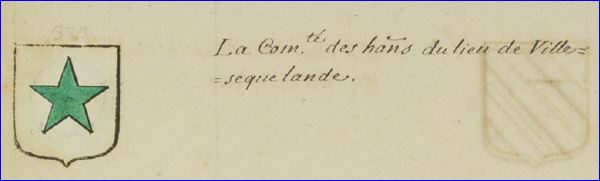 323
La Com.té des hãns du lieu de Ville=
=sequelande.